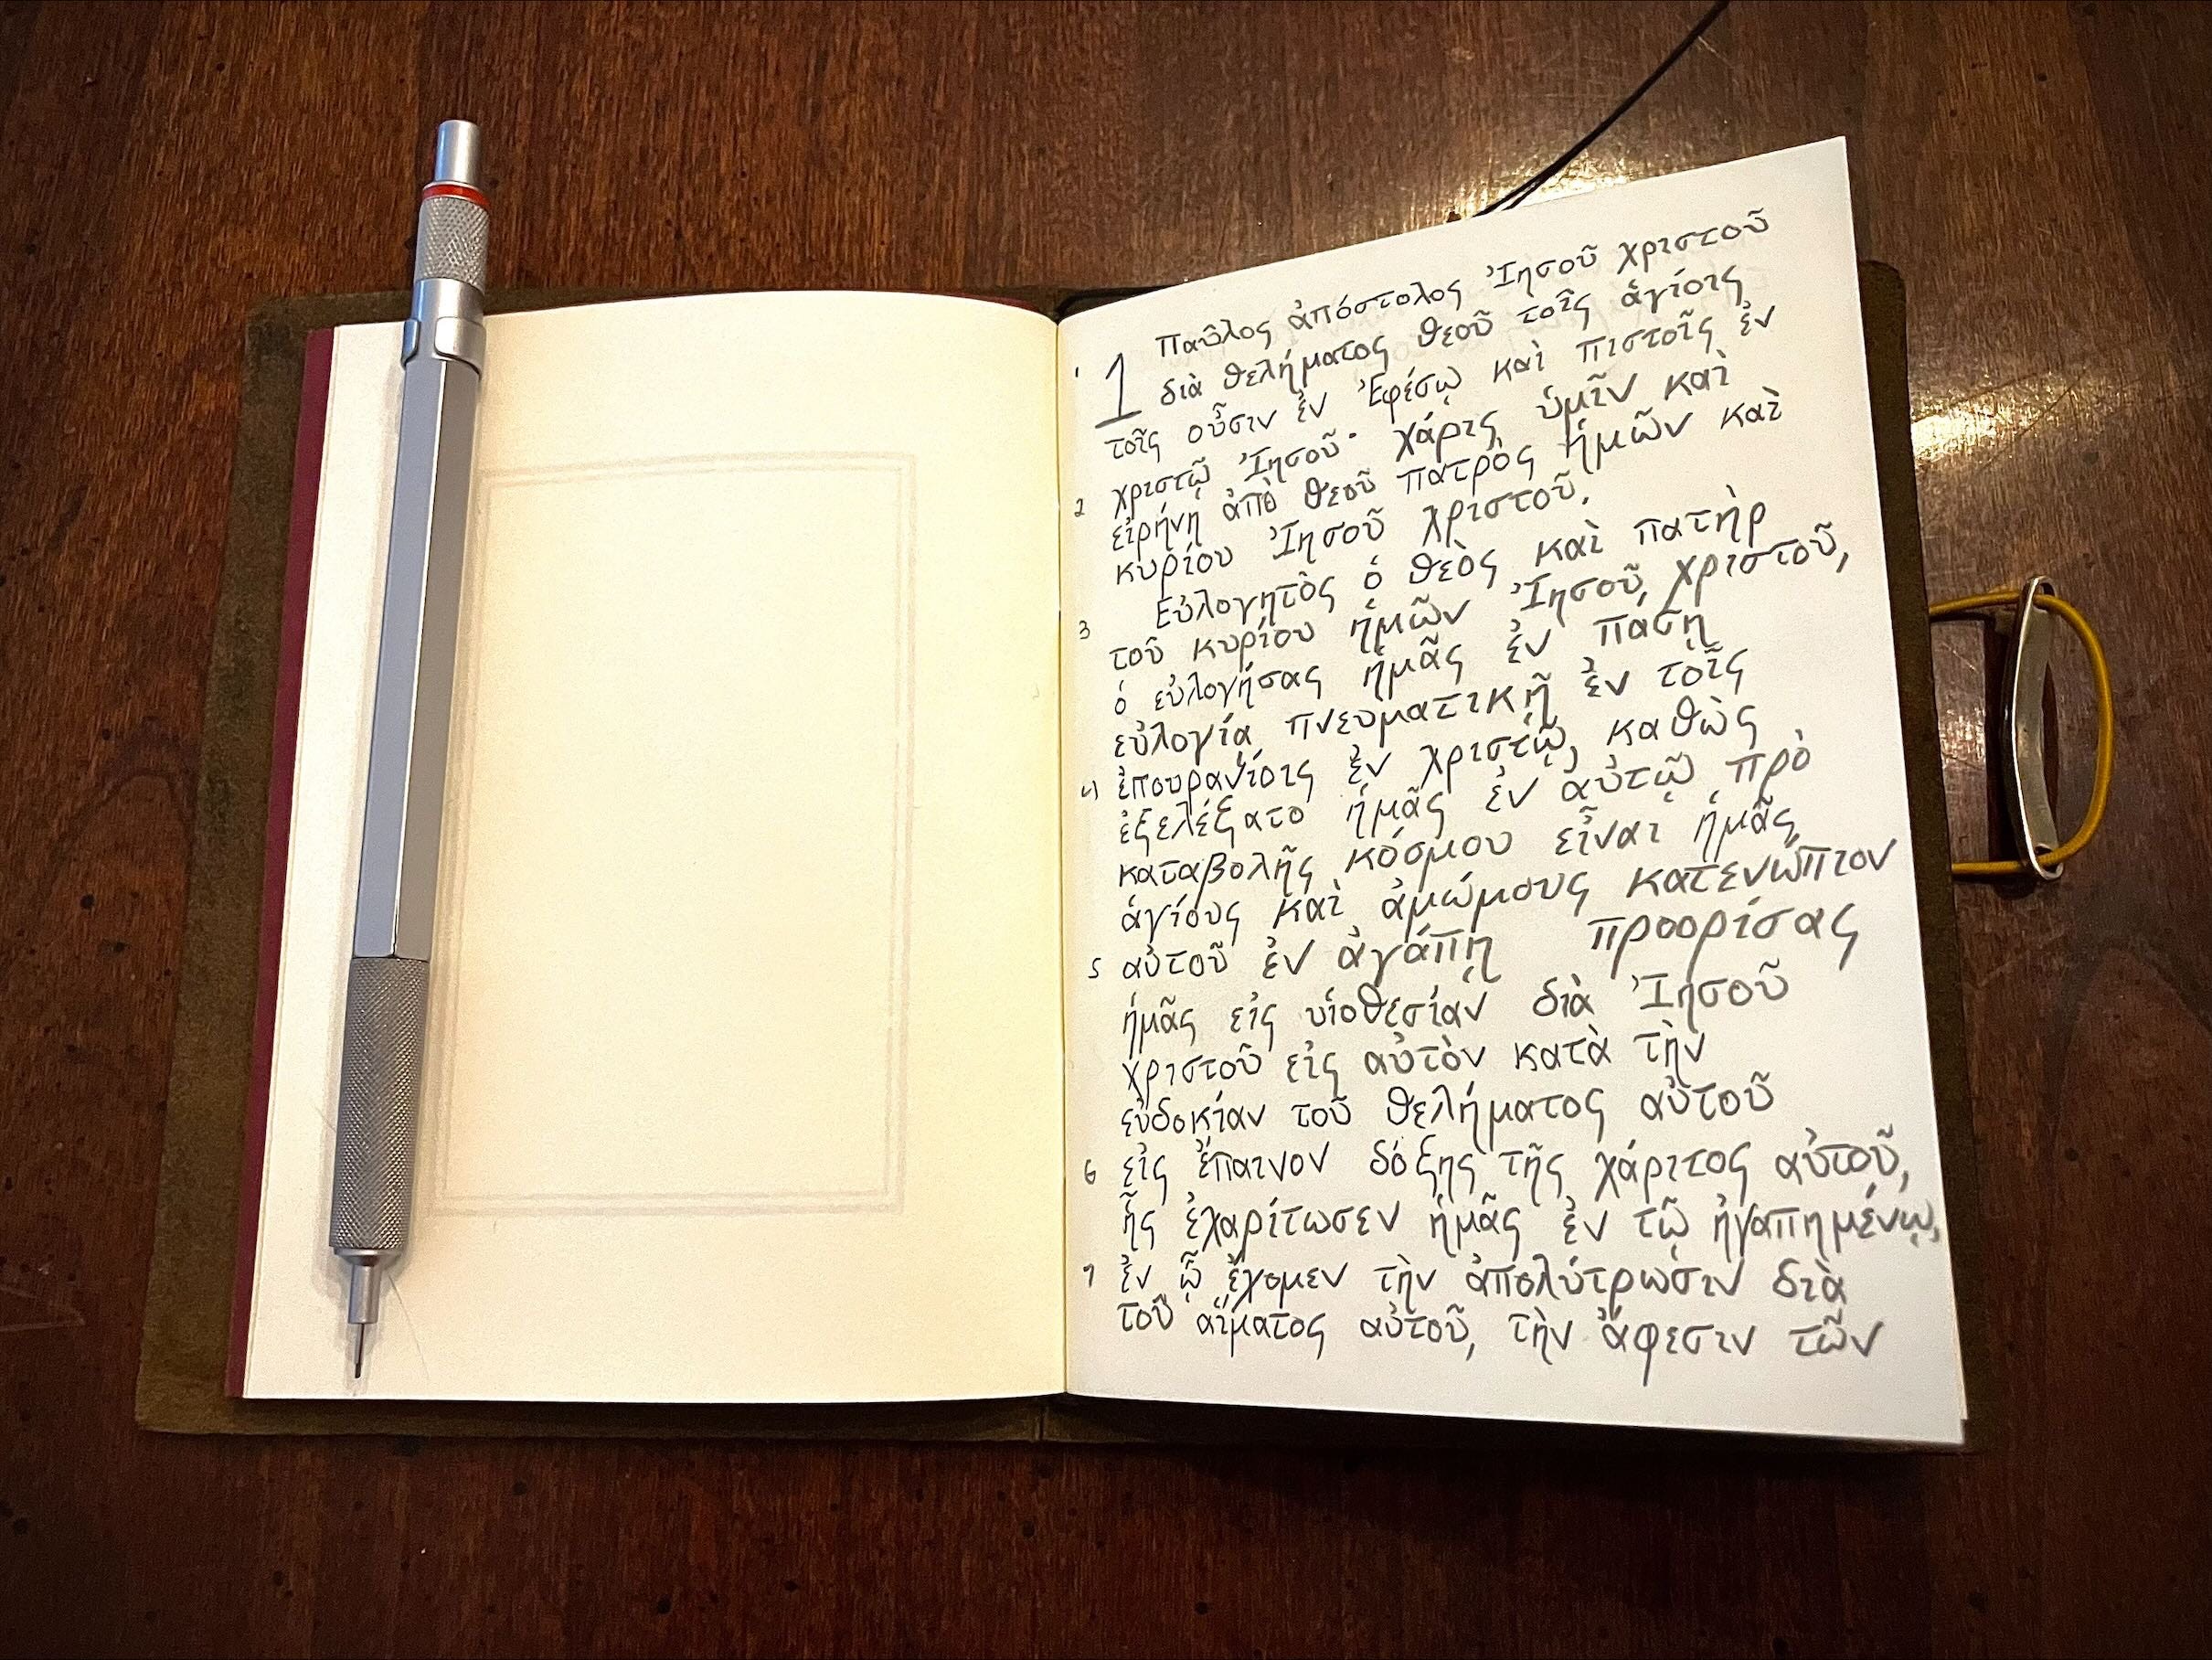 1 1 Παῦλος ἀπόστολος Ἰησοῦ χριστοῦ
διὰ θελήματος θεοῦ τοῖς ἁγίοις
τοῖς οὖσιν ἐν Ἐφέσῳ καὶ πιστοῖς ἐν
χριστῷ Ἰησοῦ· χάρις ὑμῖν καὶ
2 εἰρήνη ἀπὸ θεοῦ πατρὸς ἡμῶν καὶ
κυρίου Ἰησοῦ χριστοῦ.
Εὐλογητὸς ὁ θεὸς καὶ πατὴρ
3 τοῦ κυρίου ἡμῶν Ἰησοῦ χριστοῦ,
ὁ εὐλογήσας ἡμᾶς ἐν πάσῃ
εὐλογίᾳ πνευματικῇ ἐν τοῖς
4 ἐπουρανίοις ἐν χριστῷ, καθὼς
ἐξελέξατο ἡμᾶς ἐν αὐτῷ πρὸ
καταβολῆς κόσμου εἶναι ἡμᾶς
ἁγίους καὶ ἀμώμους κατενώπιον
5 αὐτοῦ ἐν ἀγάπῃ προορίσας
ἡμᾶς εἰς υἱοθεσίαν διὰ Ἰησοῦ
χριστοῦ εἰς αὐτὸν κατὰ τὴν
εὐδοκίαν τοῦ θελήματος αὐτοῦ
6 εἰς ἔπαινον δόξης τῆς χάριτος αὐτοῦ,
ἧς ἐχαρίτωσεν ἡμᾶς ἐν τῷ ἠγαπημένῳ,
7 ἐν ᾧ ἔχομεν τὴν ἀπολύτρωσιν διὰ
τοῦ αἵματος αὐτοῦ, τὴν ἄφεσιν τῶν